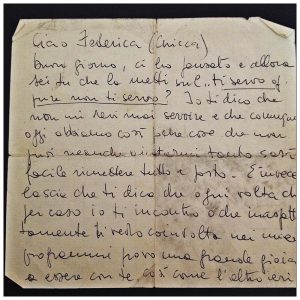 Ciao Federica (Chicca)
Buon giorno, ci ho pensato e allora
sei tu che la metti sul "ti servo op
pure non ti servo"? Io ti dico che
non mi servi mai servire e che comunque
oggi abbiamo così poche cose da non
puoi neanche tanto così
facile rimettere tutto a posto. E invece
lascia che ti dica che ogni volta che
per caso io ti incontro o che inaspet
tamente ti vedo coinvolta nei miei
programmi provo una grande gioia
a essere con te, così come l'altro ieri